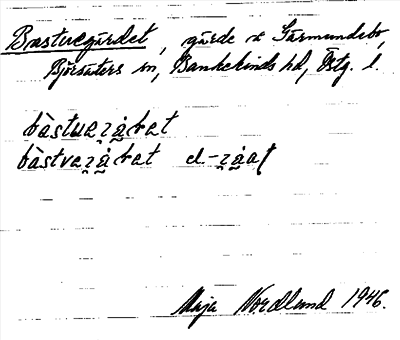 Bastuegärdet, gärde å Gärmundebo,
Björsäters sn, Bankekinds hd, Östg. l.
bàstuaʒå̀ɾat
bàstvaʒå̀ɾat d-ʒåat
Maja Nordlund 1946.